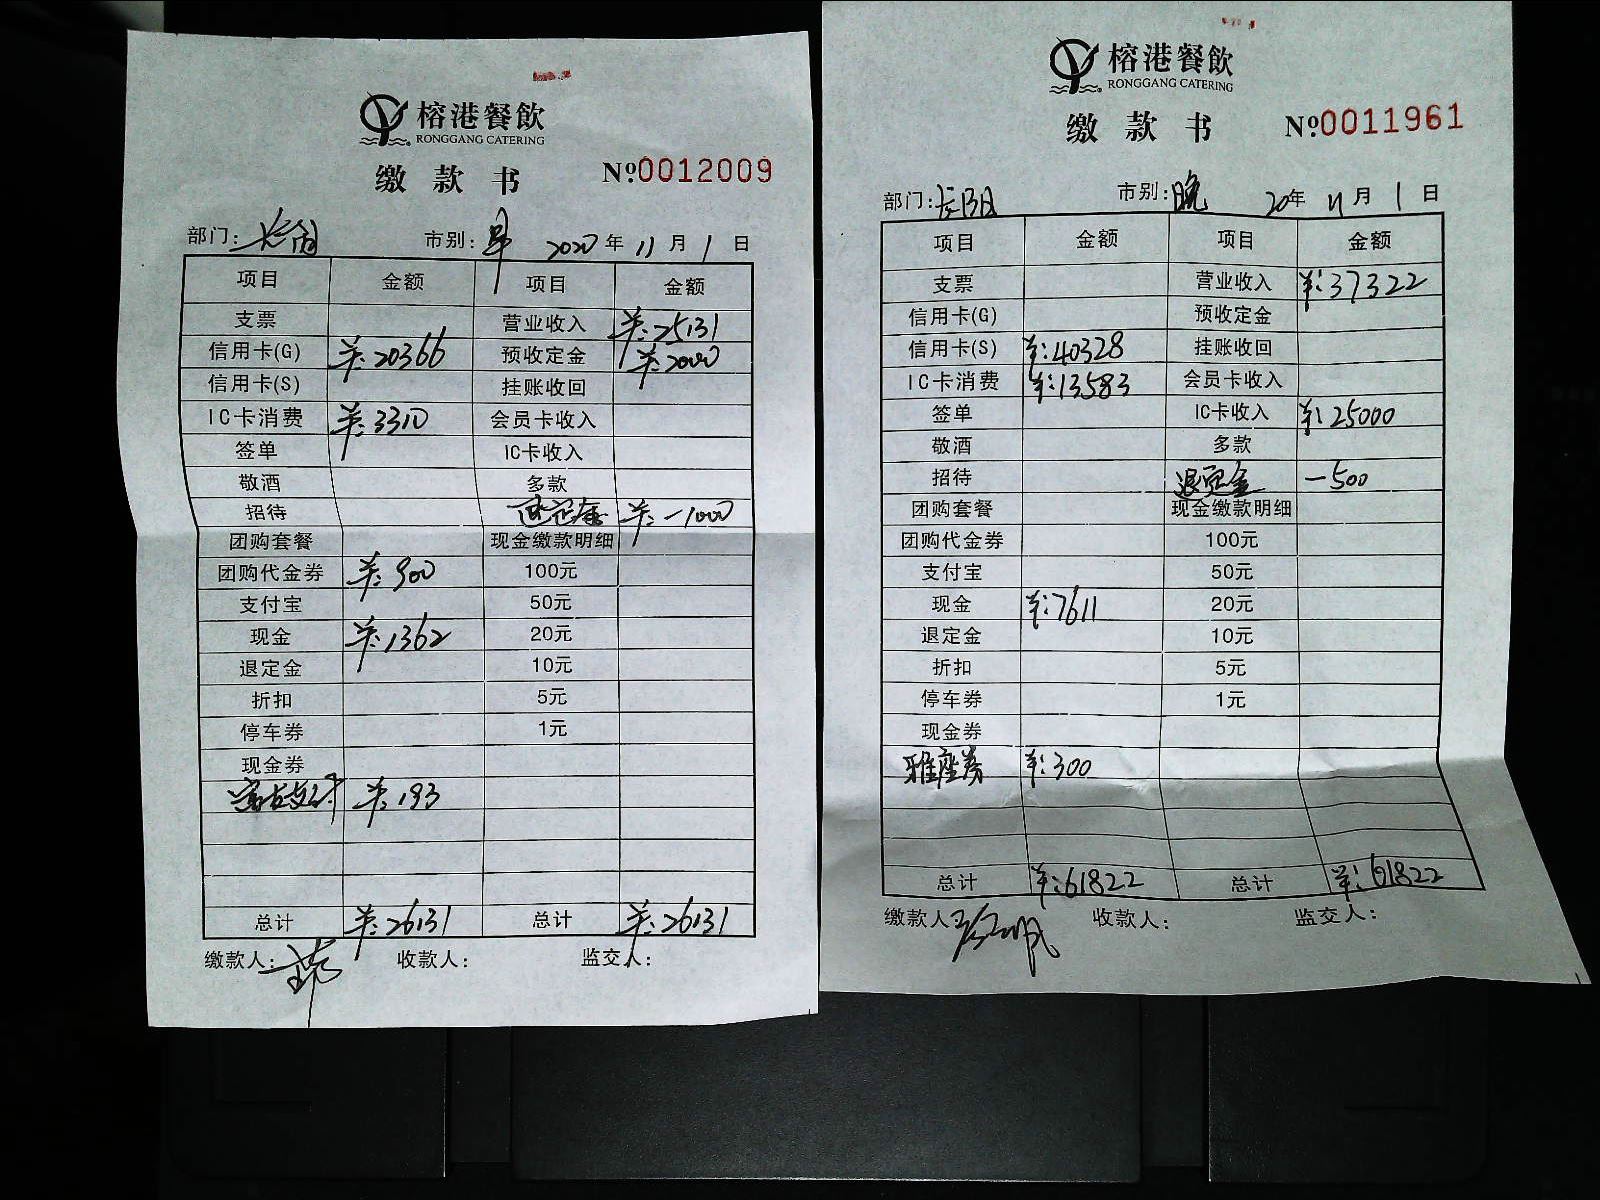 榕港餐飲
RONGGANG CATERING
缴款书
№0012009
部门: 市别:早 2020年11月1日
项目 金额 项目 金额
支票 营业收入 ¥:25131
信用卡(G) ¥:20366 预收定金 ¥:2000
信用卡(S) 挂账收回
IC卡消费 ¥:3310 会员卡收入
签单 IC卡收入
敬酒 多款
招待 退定金 ¥:-1000
团购套餐 现金缴款明细
团购代金券 ¥:900 100元
支付宝 50元
现金 ¥:1362 20元
退定金 10元
折扣 5元
停车券 1元
现金券
¥:193
总计 ¥:26131 总计 ¥:26131
缴款人: 收款人: 监交人:
榕港餐飲
RONGGANG CATERING
缴款书
№0011961
部门: 市别:晚 20年11月1日
项目 金额 项目 金额
支票 营业收入 ¥:37322
信用卡(G) 预收定金
信用卡(S) ¥:40328 挂账收回
IC卡消费 ¥:13583 会员卡收入
签单 IC卡收入 ¥:25000
敬酒 多款
招待 退定金 -500
团购套餐 现金缴款明细
团购代金券 100元
支付宝 50元
现金 ¥:7611 20元
退定金 10元
折扣 5元
停车券 1元
现金券
雅座券 ¥:300
总计 ¥:61822 总计 ¥:61822
缴款人: 收款人: 监交人: